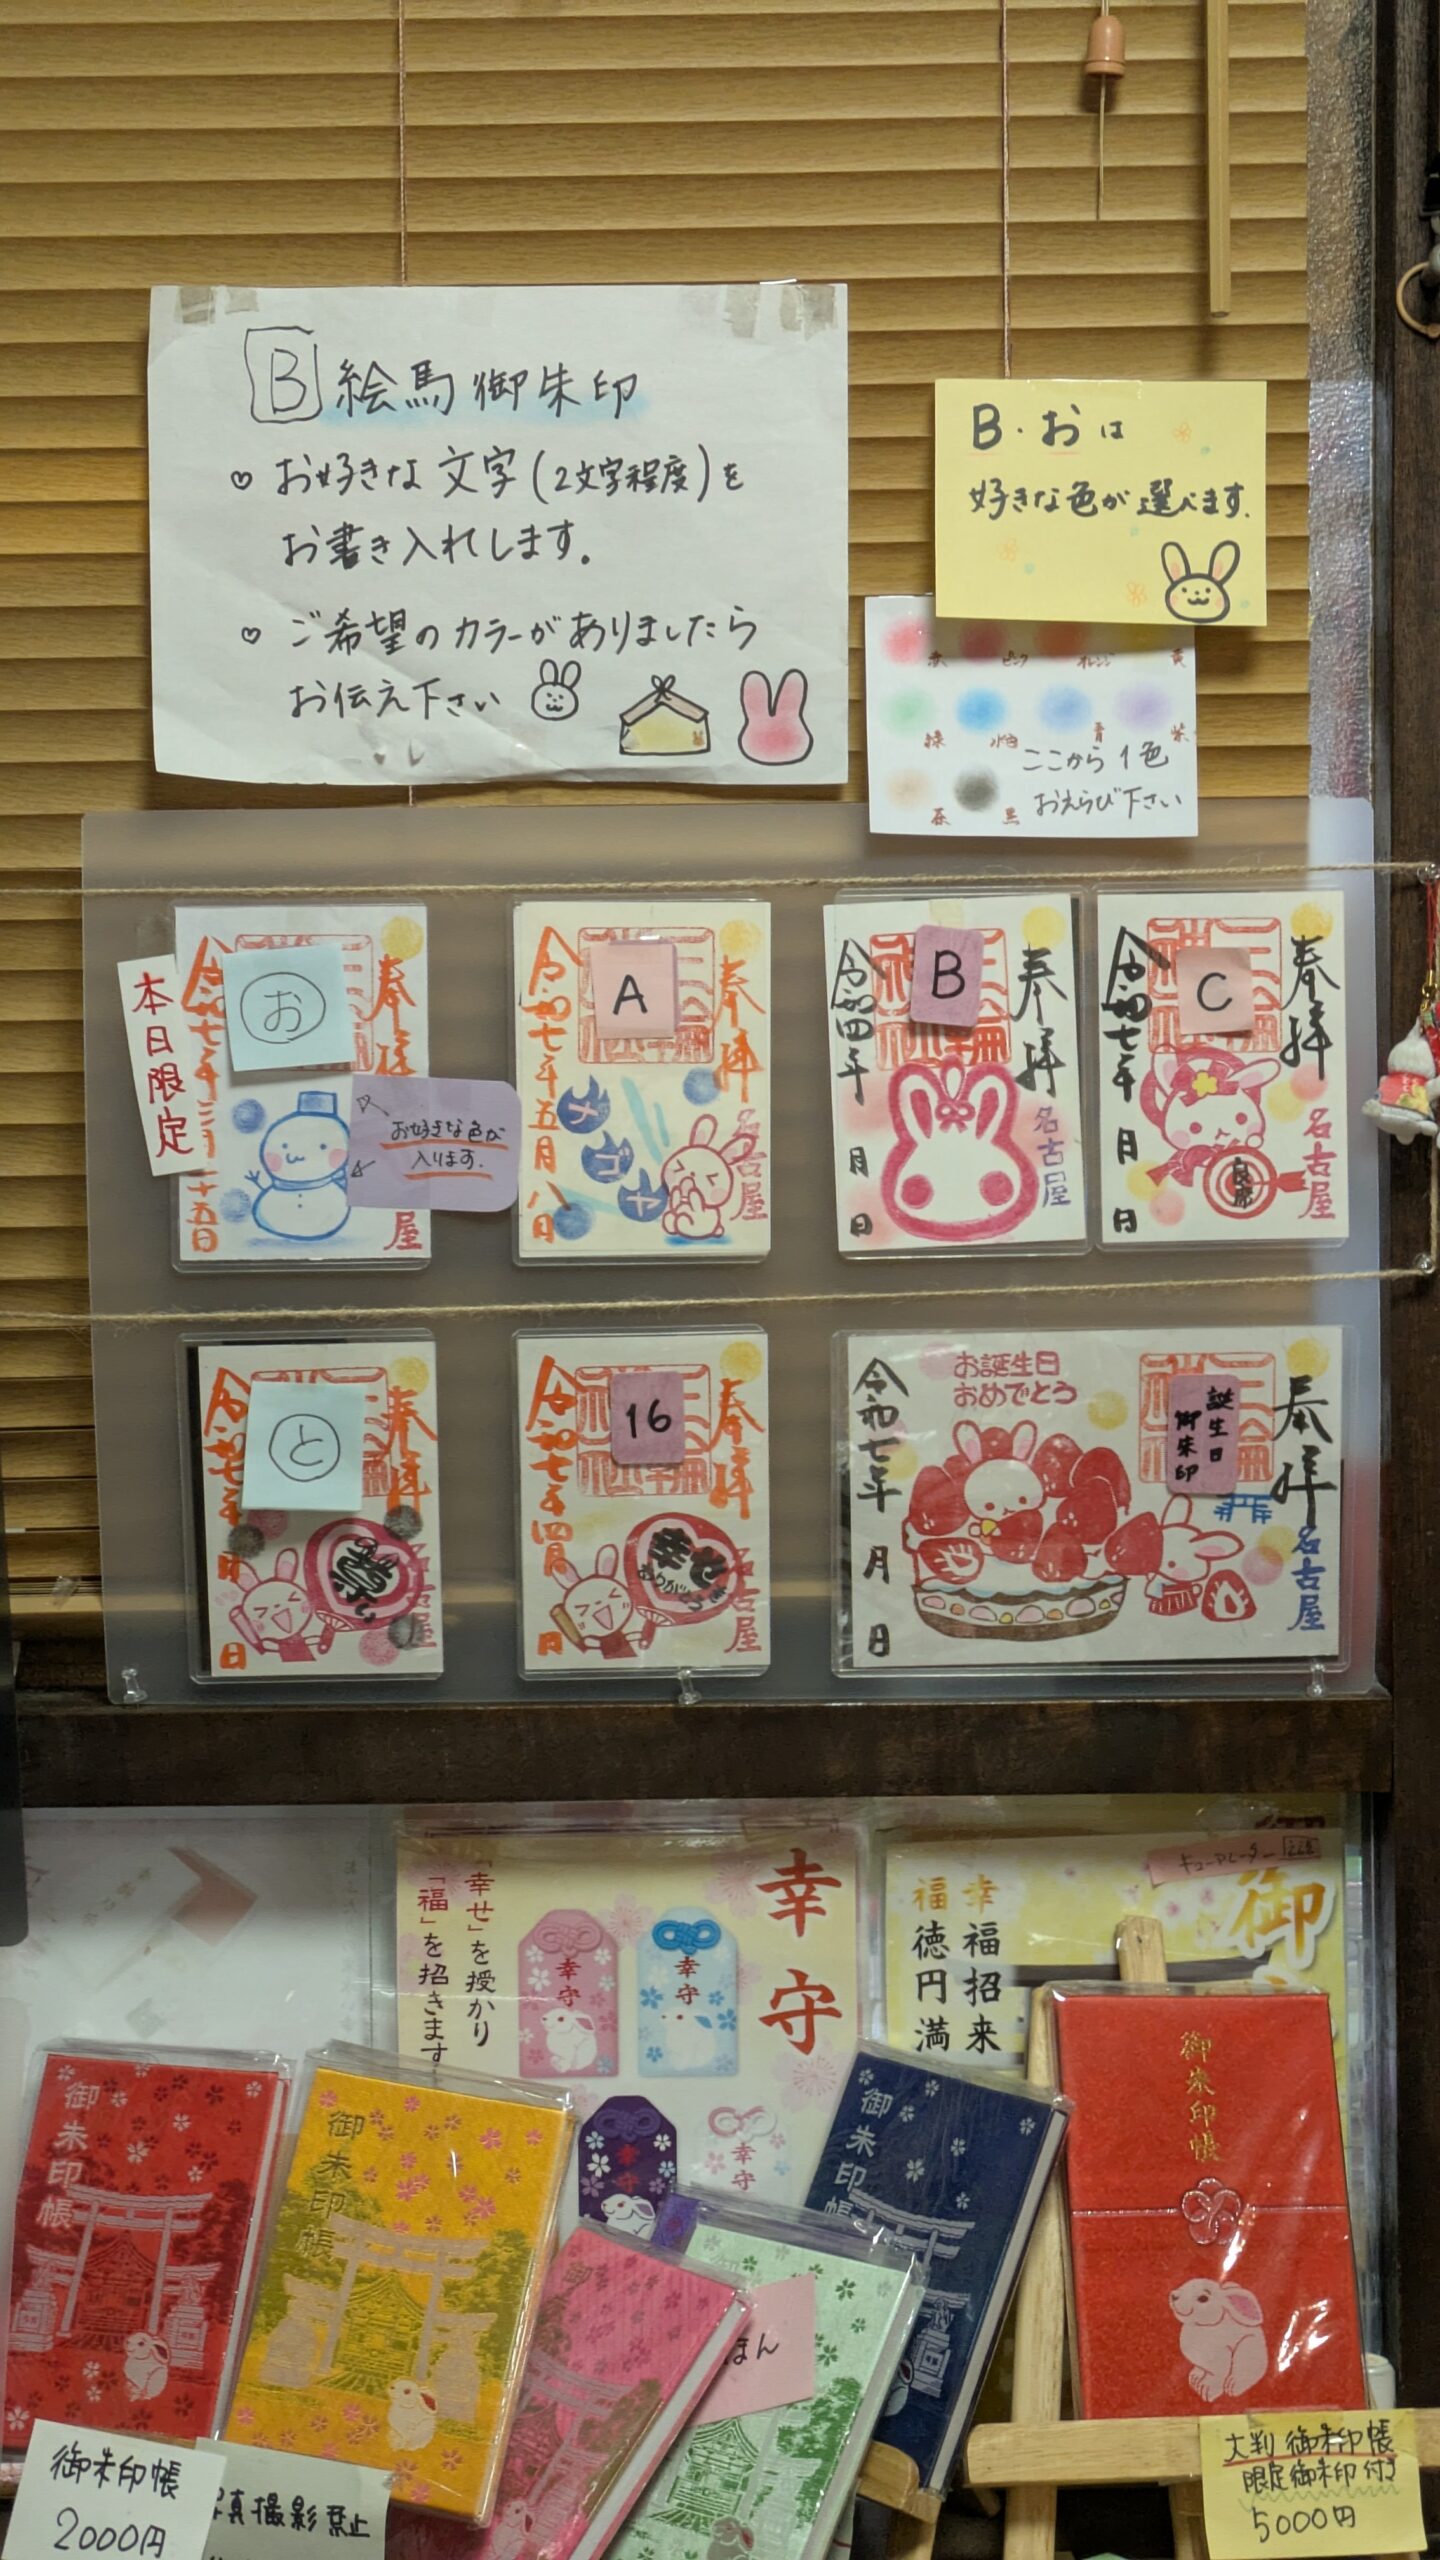 B 絵馬御朱印
♡ お好きな文字(2文字程度)を
お書き入れします。
♡ ご希望のカラーがありましたら
お伝え下さい
B・おは
好きな色が選べます.
赤 ピンク オレンジ 黄
緑 水色 青 紫
茶 黒
ここから1色
おえらび下さい
本日限定
お
奉拝
令和七年三月二十五日
屋
お好きな色が
入ります.
A
奉拝
名古屋
ナゴヤ
令和七年五月八日
B
奉拝
名古屋
令和四年 月 日
C
奉拝
名古屋
良席
令和七年 月 日
と
奉拝
令和七年 月 日
16
奉拝
名古屋
幸せ
ありがとう
令和七年四月 日
お誕生日
おめでとう
誕生日
御朱印
奉拝
名古屋
令和七年 月 日
幸守
「幸せ」を授かり
「福」を招きます
幸守
幸守
幸守
幸守
キューアレーター
御
幸福招来
福徳円満
御朱印帳
御朱印帳
御朱印帳
御朱印帳
御
ほん
御朱印帳
2000円
写真撮影禁止
大判御朱印帳
限定御朱印付き
5000円